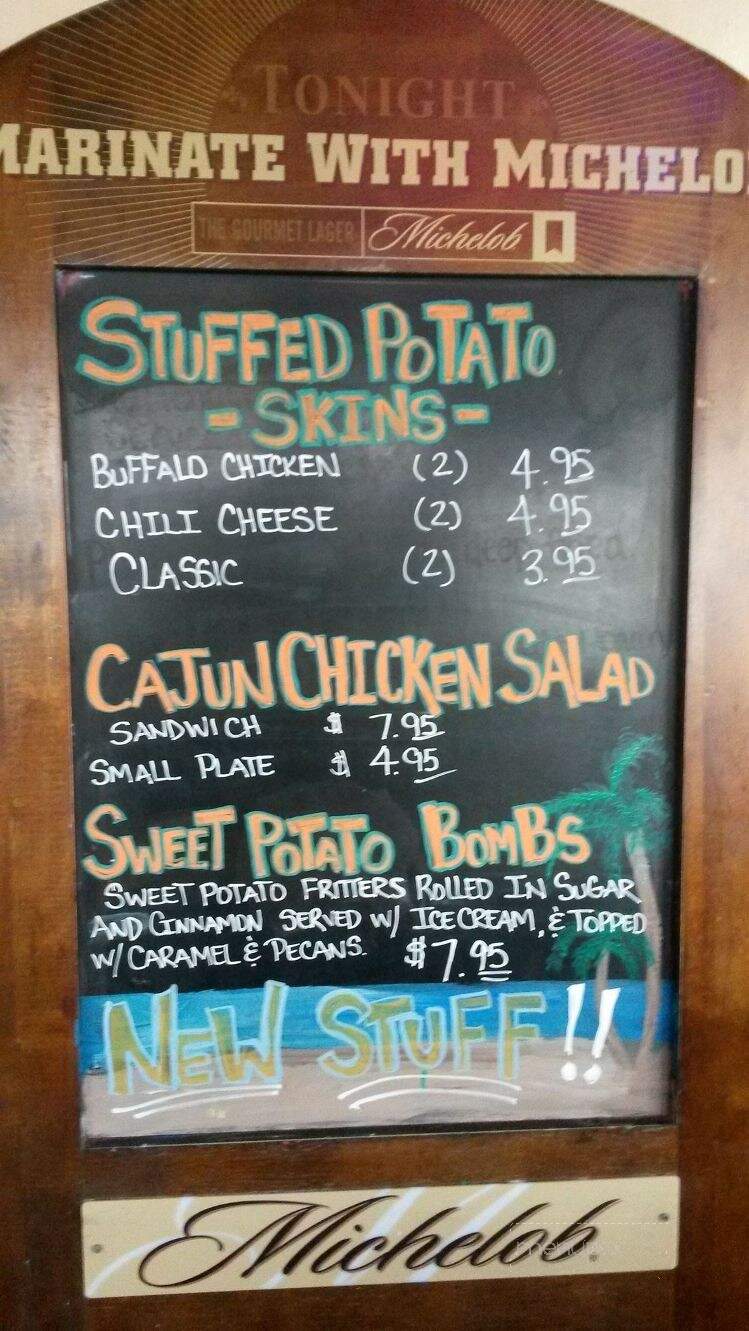 TONIGHT
MARINATE WITH MICHELO
THE GOURMET LAGER Michelob
STUFFED POTATO
- SKINS -
BUFFALO CHICKEN (2) 4.95
CHILI CHEESE (2) 4.95
CLASSIC (2) 3.95
CAJUN CHICKEN SALAD
SANDWICH $ 7.95
SMALL PLATE $ 4.95
SWEET POTATO BOMBS
SWEET POTATO FRITTERS ROLLED IN SUGAR
AND CINNAMON SERVED W/ ICE CREAM, & TOPPED
W/ CARAMEL & PECANS. $7.95
NEW STUFF!!
Michelob